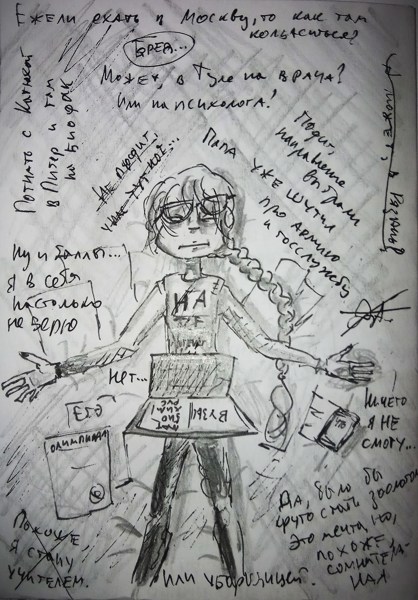 Ежели ехать в Москву, то как там
колбаситься?
Бред...
Может, в Туле на врача?
Или на психолога?
Погнать с Катькой
в Питер и там
на Биофак
А может, в Рязань
Не проходит,
у нас
Папа уже шутил
про армию
и госслужбу
Подит.
направление
выбрали
Ну и баллы...
я в себя
настолько
не верю
НА
Нет...
ЕГЭ
ОЛИМПИАДА
ВУЗЫ
БИО
ХИМ
РУС
Ничего
я не
смогу...
Похоже,
я стану
учителем.
или уборщицей.
Да, было бы
круто стать зоологом
Это мечта, но,
похоже,
сомнительная